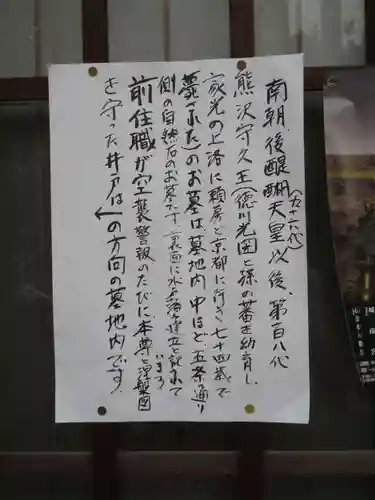 南朝、後醍醐天皇以後、第百八代
(九十六代)
熊沢守久王(徳川光圀と孫の蕃を幼育し、
家光の上洛に頼房と京都に行き七十四歳で
薨(こおった)のお墓は、墓地内中ほど、五条通り
側の自然石のお墓です。裏面に水戸藩建立と記れて
います。
前住職が空襲警報のたびに本尊と涅槃図
を守った井戸は↑の方向の墓地内です。